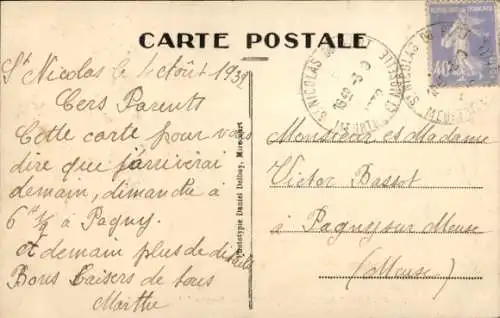 CARTE POSTALE
St Nicolas le 4 Août 1932
Cers Parents
Cette carte pour vous
dire que j'arriverai
demain, dimanche à
6 H ½ à Pagny.
A demain plus de détails
Bons Baisers de tous
Marthe
Phototypie Daniel Delboy, Mirecourt
Monsieur et Madame
Victor Bassot
à Pagny sur Meuse
(Meuse)
St NICOLAS
MEURTHE
40
St NICOLAS
MEURTHE